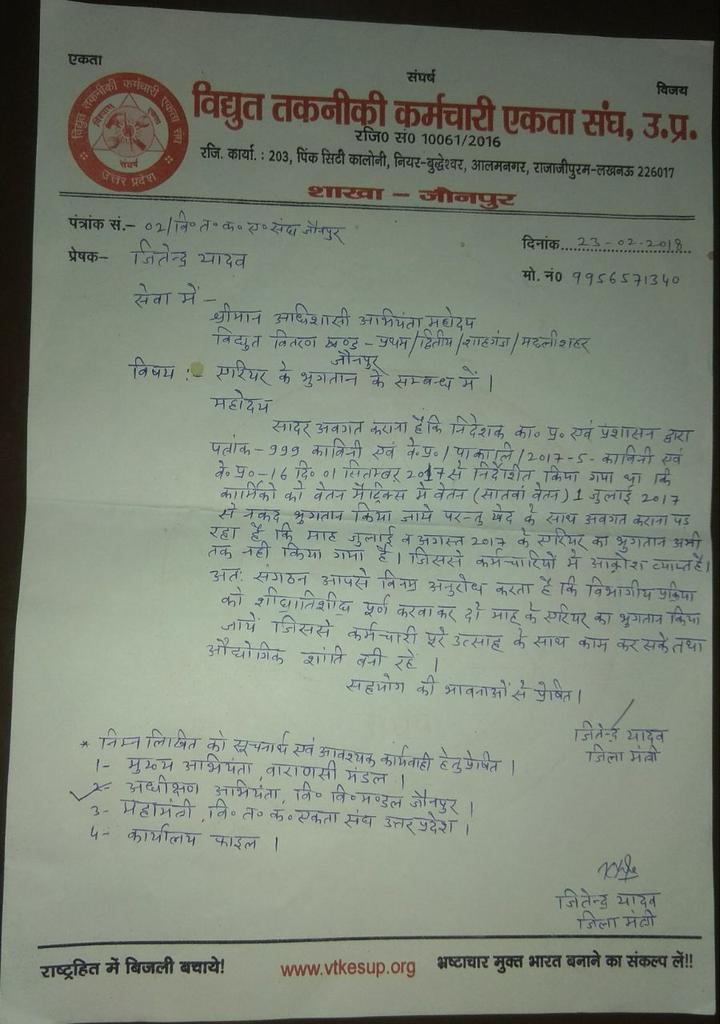 एकता
संघर्ष
विजय
विद्युत तकनीकी कर्मचारी एकता संघ, उ.प्र.
रजि0 सं0 10061/2016
रजि. कार्या. : 203, पिंक सिटी कालोनी, नियर-बुद्धेश्वर, आलमनगर, राजाजीपुरम-लखनऊ 226017
विद्युत तकनीकी कर्मचारी एकता संघ
संघर्ष
उत्तर प्रदेश
शाखा – जौनपुर
पंत्रांक सं.– 02/वि०त०क०ए०संघ जौनपुर
दिनांक....23-02-2018
प्रेषक– जितेन्द्र यादव
मो. नं0 9956571340
सेवा में –
श्रीमान अधिशासी अभियंता महोदय
विद्युत वितरण खण्ड - प्रथम/द्वितीय/शाहगंज/मछलीशहर
जौनपुर
विषय :- एरियर के भुगतान के सम्बन्ध में।
महोदय
सादर अवगत कराना है कि निदेशक का० प्र० एवं प्रशासन द्वारा
पत्रांक-999 काविनी एवं वे.प्र०/पाकालि/2017-5-काविनी एवं
वे० प्र०-16 दि० 01 सितम्बर 2017 से निर्देशित किया गया था कि
कार्मिको को वेतन मैट्रिक्स मे वेतन (सातवां वेतन) 1 जुलाई 2017
से नकद भुगतान किया जाये परन्तु खेद के साथ अवगत कराना पड़
रहा है कि माह जुलाई व अगस्त 2017 के एरियर का भुगतान अभी
तक नही किया गया है। जिससे कर्मचारियों मे आक्रोश व्याप्त है।
अतः संगठन आपसे विनम्र अनुरोध करता है कि विभागीय प्रक्रिया
को शीघ्रातिशीघ्र पूर्ण करवाकर दो माह के एरियर का भुगतान किया
जायें जिससे कर्मचारी पूरे उत्साह के साथ काम कर सके तथा
औद्योगिक शांति बनी रहें।
सहयोग की भावनाओं से प्रेषित।
जितेन्द्र यादव
जिला मंत्री
* निम्न लिखित को सूचनार्थ एवं आवश्यक कार्यवाही हेतु प्रेषित।
1- मुख्य अभियंता, वाराणसी मंडल।
2- अधीक्षण अभियंता, वि० वि० मण्डल जौनपुर।
3- महामंत्री, वि० त० क० एकता संघ उत्तर प्रदेश।
4- कार्यालय फाइल।
जितेन्द्र यादव
जिला मंत्री
राष्ट्रहित में बिजली बचाये!
www.vtkesup.org
भ्रष्टाचार मुक्त भारत बनाने का संकल्प लें!!